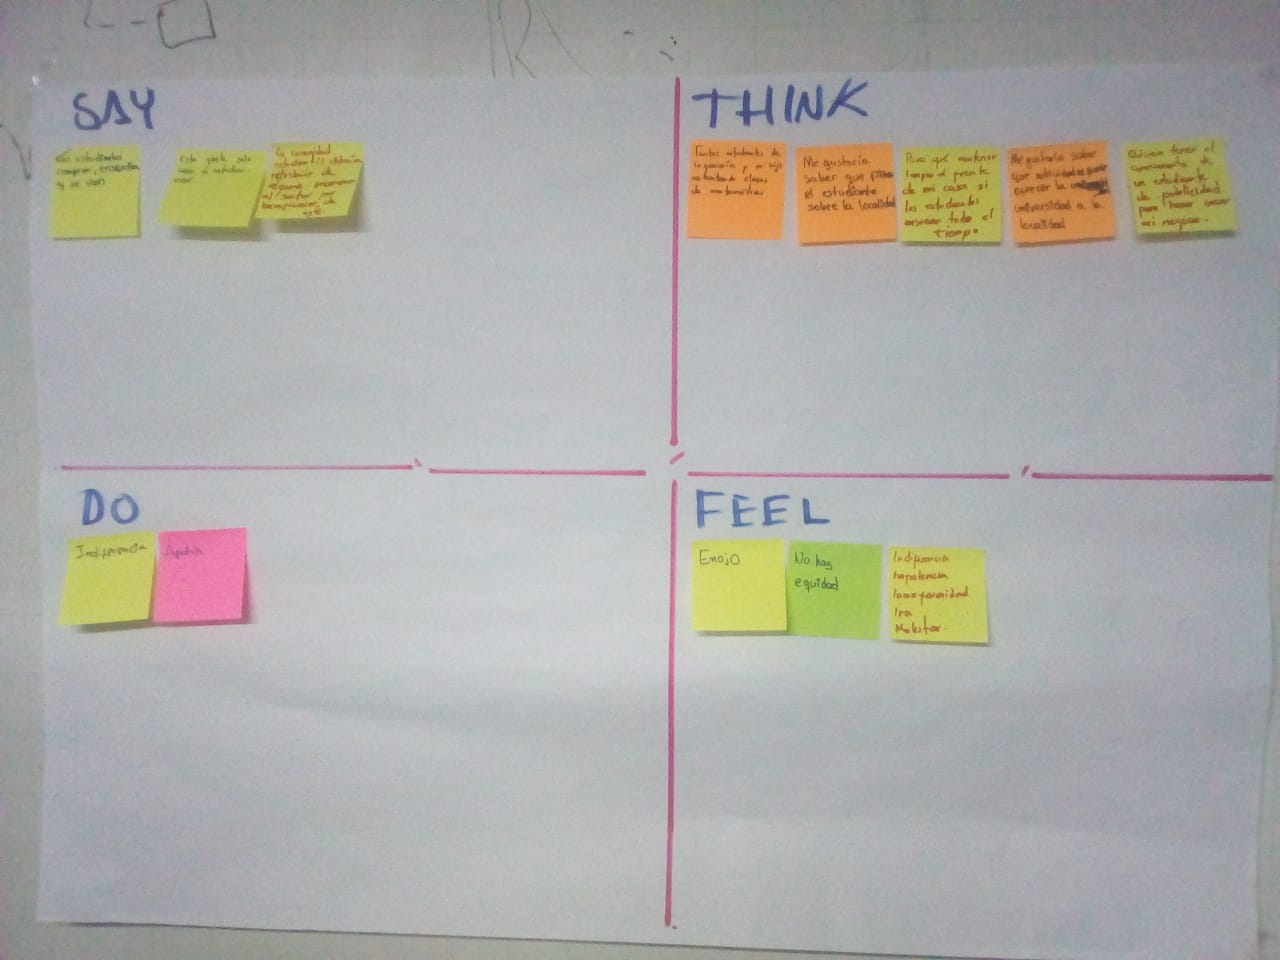 SAY
Los estudiantes
compran, ensucian
y se van
Esta gente solo
viene a
La comunidad
estudiantil debería
retribuir de
alguna manera
al sector por
de
este.
THINK
Tantos estudiantes de
ingeniería y mi hijo
clases
de matemática
Me gustaría
saber que piensa
el estudiante
sobre la localidad
Para qué mantener
limpio el frente
de mi casa si
los estudiantes
ensucian todo el
tiempo.
Me gustaría saber
que actividades puede
ofrecer la
universidad a la
localidad
Quisiera tener el
conocimiento de
un estudiante
de publicidad
para hacer crecer
mi negocio.
DO
Indiferencia
Apatía
FEEL
Enojo
No hay
equidad
Indiferencia
Impotencia
Inconformidad
Ira
Malestar.